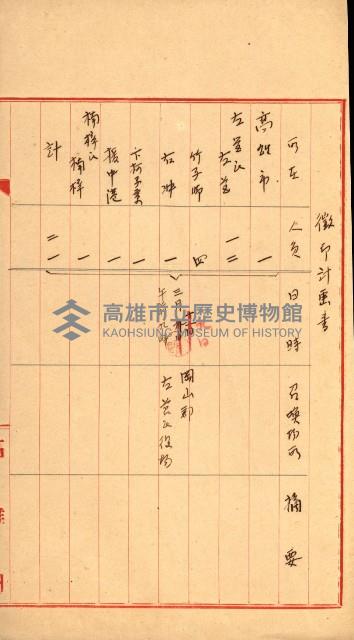 徵印計画書
所在 人員 日時 召喚場所 摘要
高雄市 一
左營区 左營 一二
竹子脚 四
右冲 一 三月 日午前九時 岡山郡左営区役場
下蚵子寮 一
援中港 一
楠梓区 楠梓 一
計 二一
高雄市立歷史博物館
KAOHSIUNG MUSEUM OF HISTORY